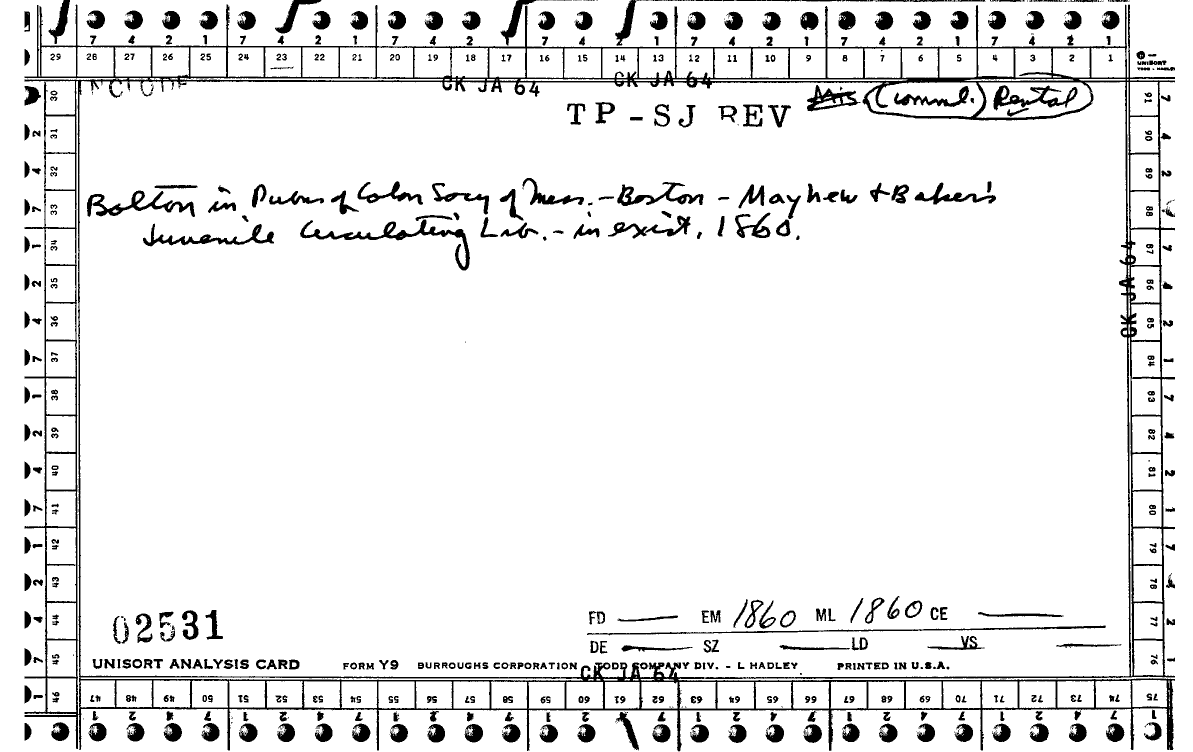 7 4 2 1 7 4 2 1 7 4 2 1 7 4 2 1 7 4 2 1 7 4 2 1 7 4 2 1
29 28 27 26 25 24 23 22 21 20 19 18 17 16 15 14 13 12 11 10 9 8 7 6 5 4 3 2 1
UNISORT
TODD - HADLEY
INCLUDE CK JA 64 CK JA 64
TP-SJ REV Mis (comml.) Rental
Bolton in Pubns of Colon Socy of Mass. - Boston - Mayhew & Baker's
Juvenile Circulating Lib. - in exist. 1860.
30 31 32 33 34 35 36 37 38 39 40 41 42 43 44 45 46
91 90 89 88 87 86 85 84 83 82 81 80 79 78 77 76
CK JA 64
02531
FD — EM 1860 ML 1860 CE —
DE — SZ — LD — VS —
UNISORT ANALYSIS CARD FORM Y9 BURROUGHS CORPORATION TODD COMPANY DIV. - L HADLEY PRINTED IN U.S.A.
CK JA 64
47 48 49 50 51 52 53 54 55 56 57 58 59 60 61 62 63 64 65 66 67 68 69 70 71 72 73 74 75
1 2 4 7 1 2 4 7 1 2 4 7 1 2 4 7 1 2 4 7 1 2 4 7 1 2 4 7